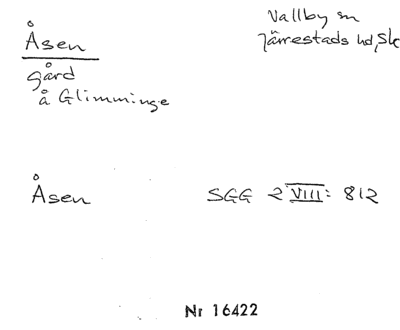 Åsen
Vallby sn
Järrestads hd, Sk
gård
å Glimminge
Åsen
SGG 2 VIII: 812
Nr 16422